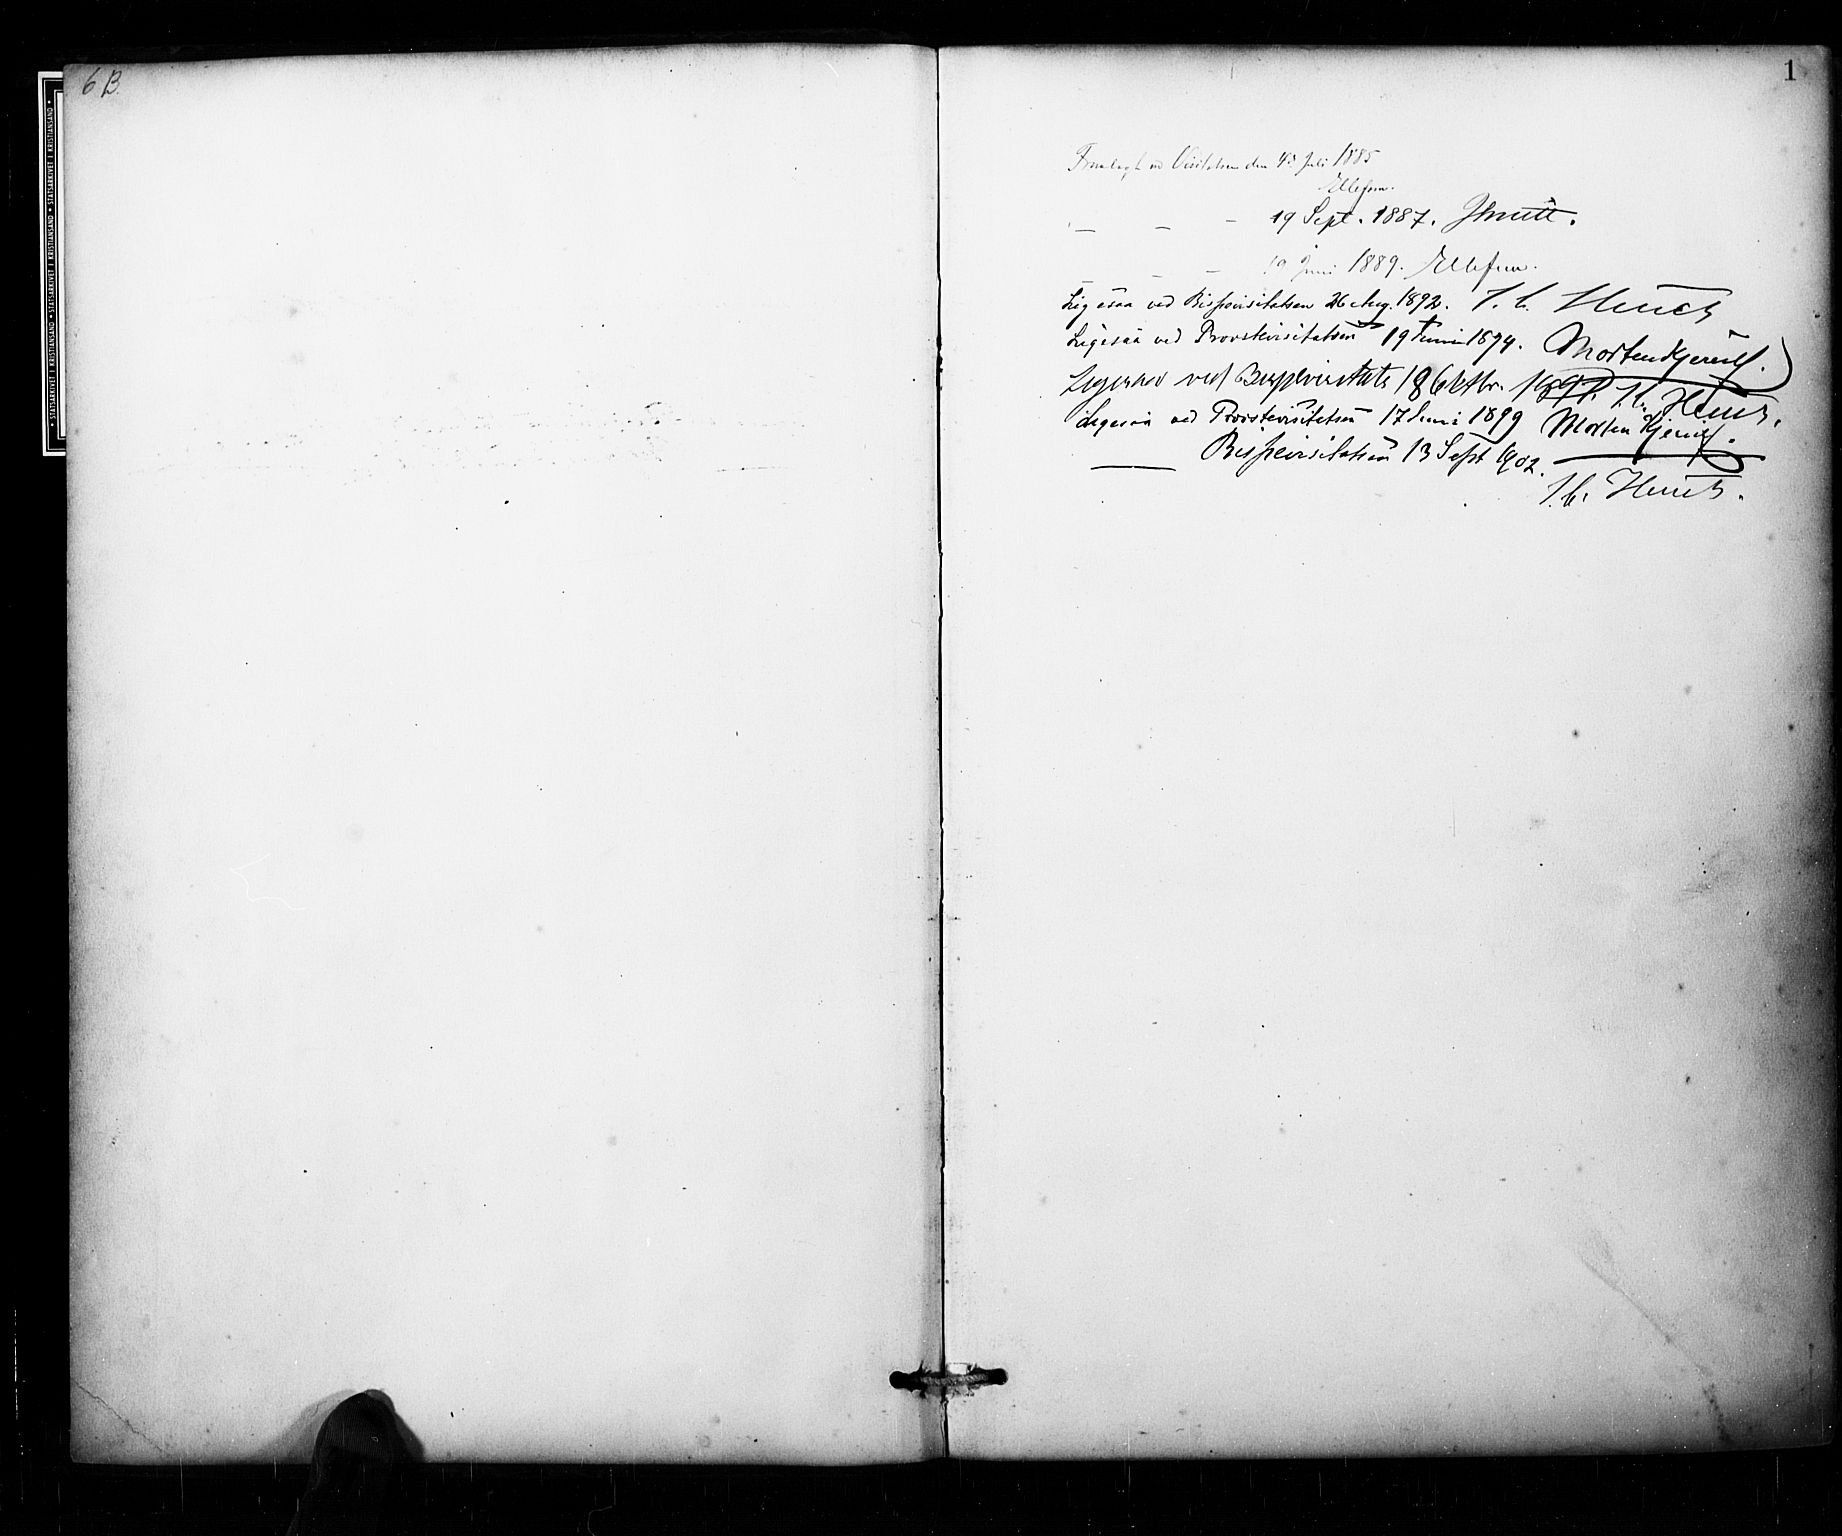 6B.
1
STATSARKIVET I KRISTIANSAND • STATSARKIVET I KRISTIANSAND • STATSARKIVET I KRISTIANSAND •
Fremlagt ved Visitatsen den Juli 1885
Ellefsen.
— — — 19 Sept. 1887. Smitt.
— — 19 Juni 1889. Ellefsen.
Ligesaa ved Bispevisitatsen 26 Aug. 1892. J. C. Heuch
Ligesaa ved Provstevisitatsen 19 Juni 1894. Morten Kjerulf.
Ligesaa ved Bispevisitats 18 Oktbr. J. C. Heuch.
Ligesaa ved Provstevisitatsen 17 Juni 1899 Morten Kjerulf.
— Bispevisitatsen 13 Sept 1902.
J. C. Heuch.